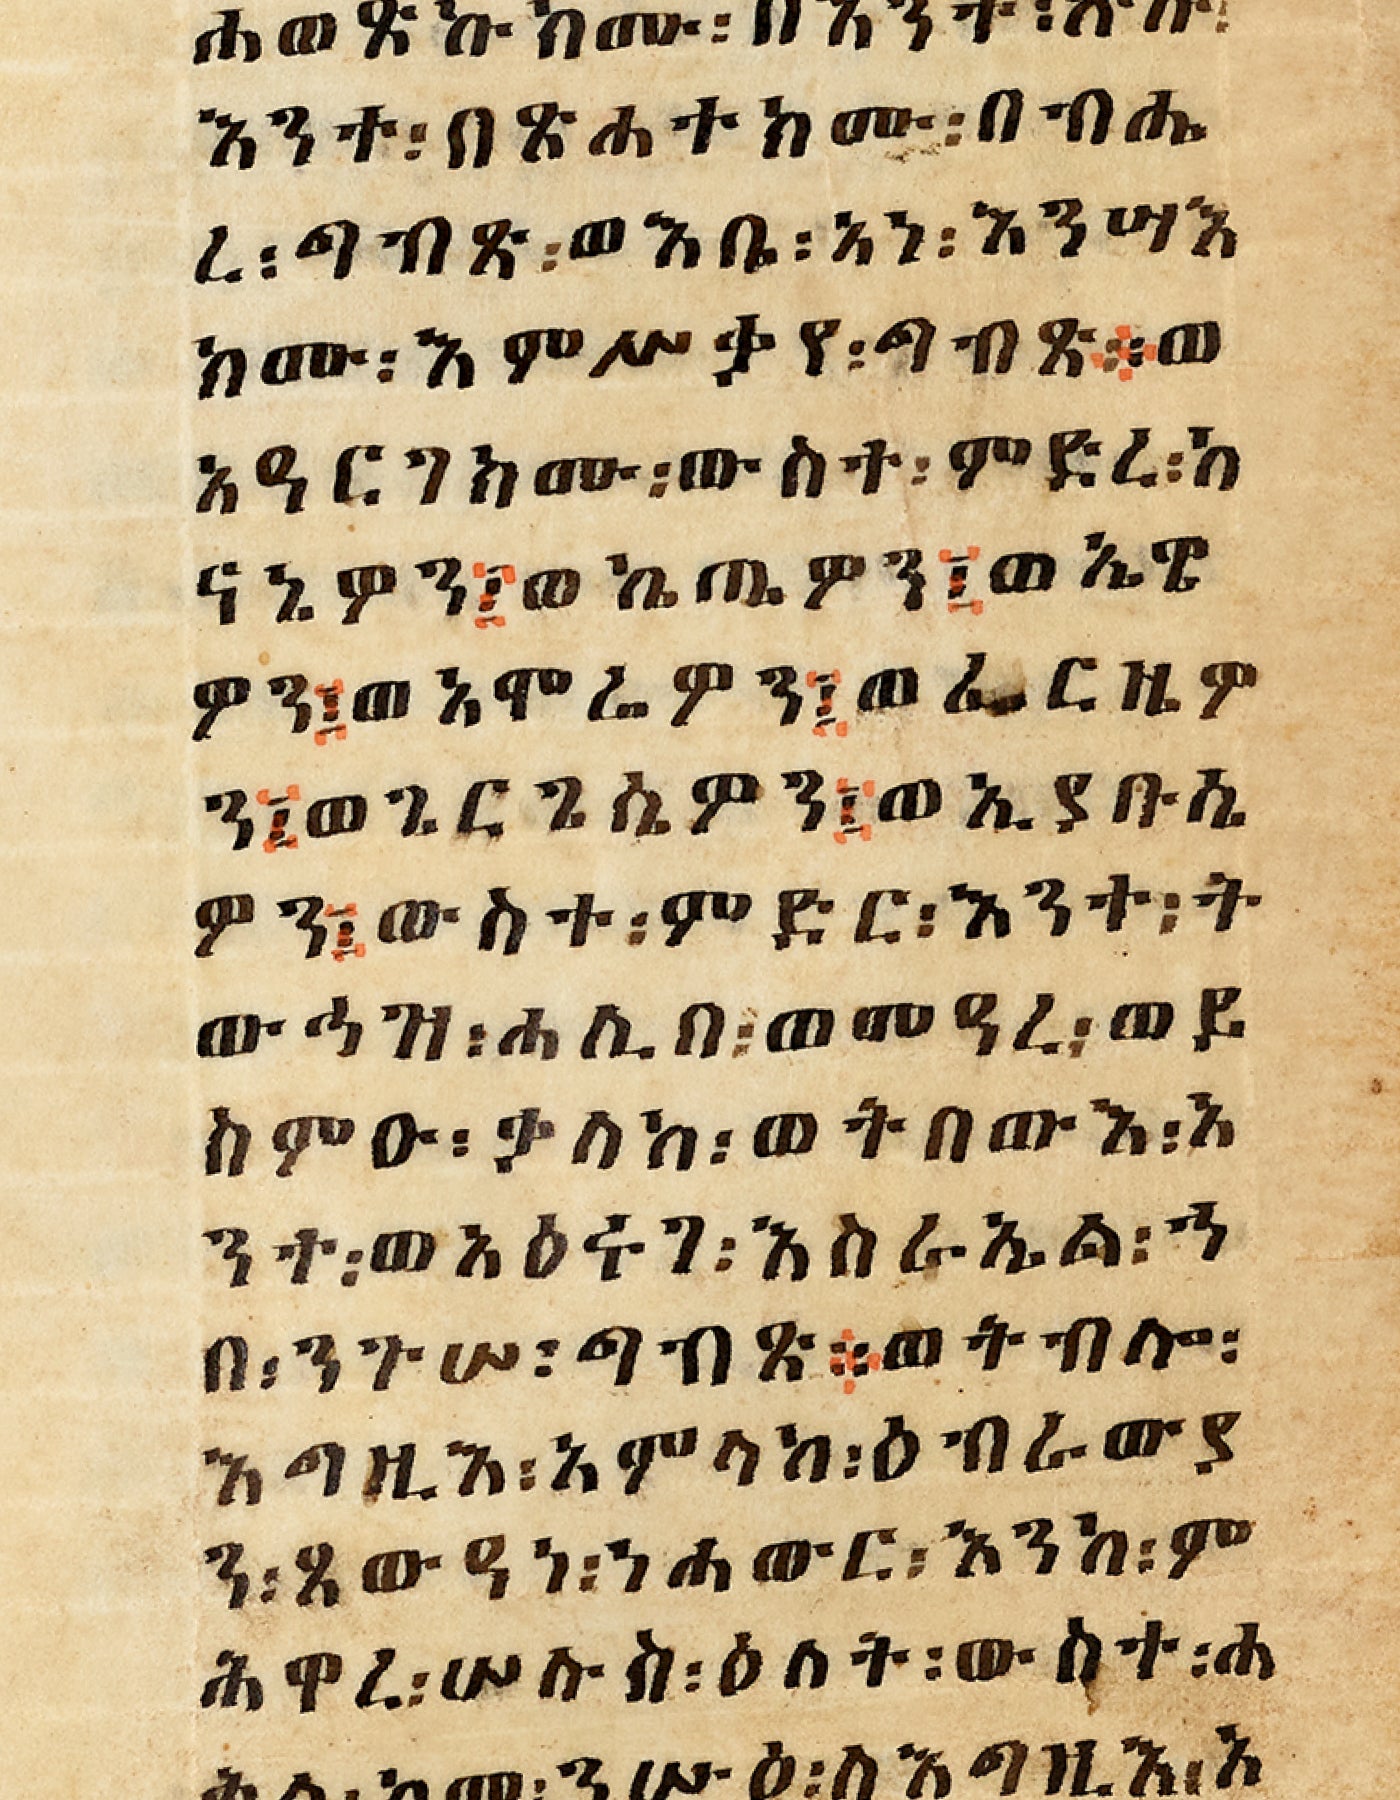 ሐወጽኩክሙ፡በእንተ፡
እንተ፡በጽሐተክሙ፡በብሔ
ረ፡ግብጽ፡ወእቤ፡አነ፡እንሣእ
ክሙ፡እምሥቃየ፡ግብጽ፨ወ
አዓርገክሙ፡ውስተ፡ምድረ፡ከ
ናኔዎን፤ወኬጤዎን፤ወኤዌ
ዎን፤ወአሞሬዎን፤ወፌርዜዎ
ን፤ወጌርጌሴዎን፤ወኢያቡሴ
ዎን፤ውስተ፡ምድር፡እንተ፡ት
ውሕዝ፡ሐሊበ፡ወመዓረ፡ወይ
ስምዑ፡ቃለከ፡ወትበውእ፡አ
ንተ፡ወአዕሩገ፡እስራኤል፡ኀ
በ፡ንጉሠ፡ግብጽ፨ወትብሎ፡
እግዚእ፡አምላከ፡ዕብራውያ
ን፡ጸውዓነ፡ነሐውር፡እንከ፡ም
ሕዋረ፡ሠሉስ፡ዕለት፡ውስተ፡ሐ
ቅል፡ከመ፡ንሡዕ፡ለእግዚእ፡አ